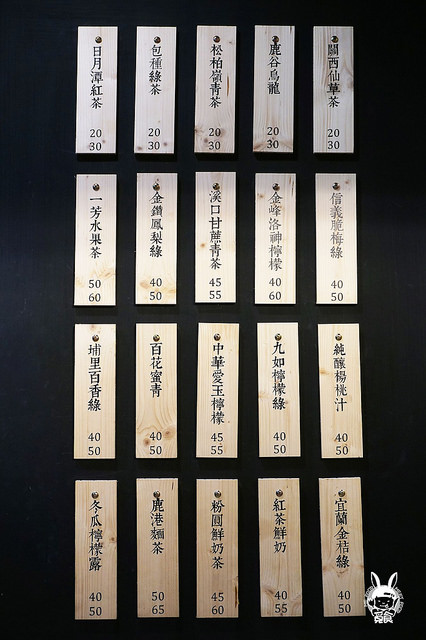 日月潭紅茶
20
30
包種綠茶
20
30
松柏嶺青茶
20
30
鹿谷烏龍
20
30
關西仙草茶
20
30
一芳水果茶
50
60
金鑽鳳梨綠
40
50
溪口甘蔗青茶
45
55
金峰洛神檸檬
40
60
信義脆梅綠
40
50
埔里百香綠
40
50
百花蜜青
40
50
中華愛玉檸檬
45
55
九如檸檬綠
40
50
純釀楊桃汁
40
50
冬瓜檸檬露
40
50
鹿港麵茶
50
65
粉圓鮮奶茶
45
60
紅茶鮮奶
40
55
宜蘭金桔綠
40
50